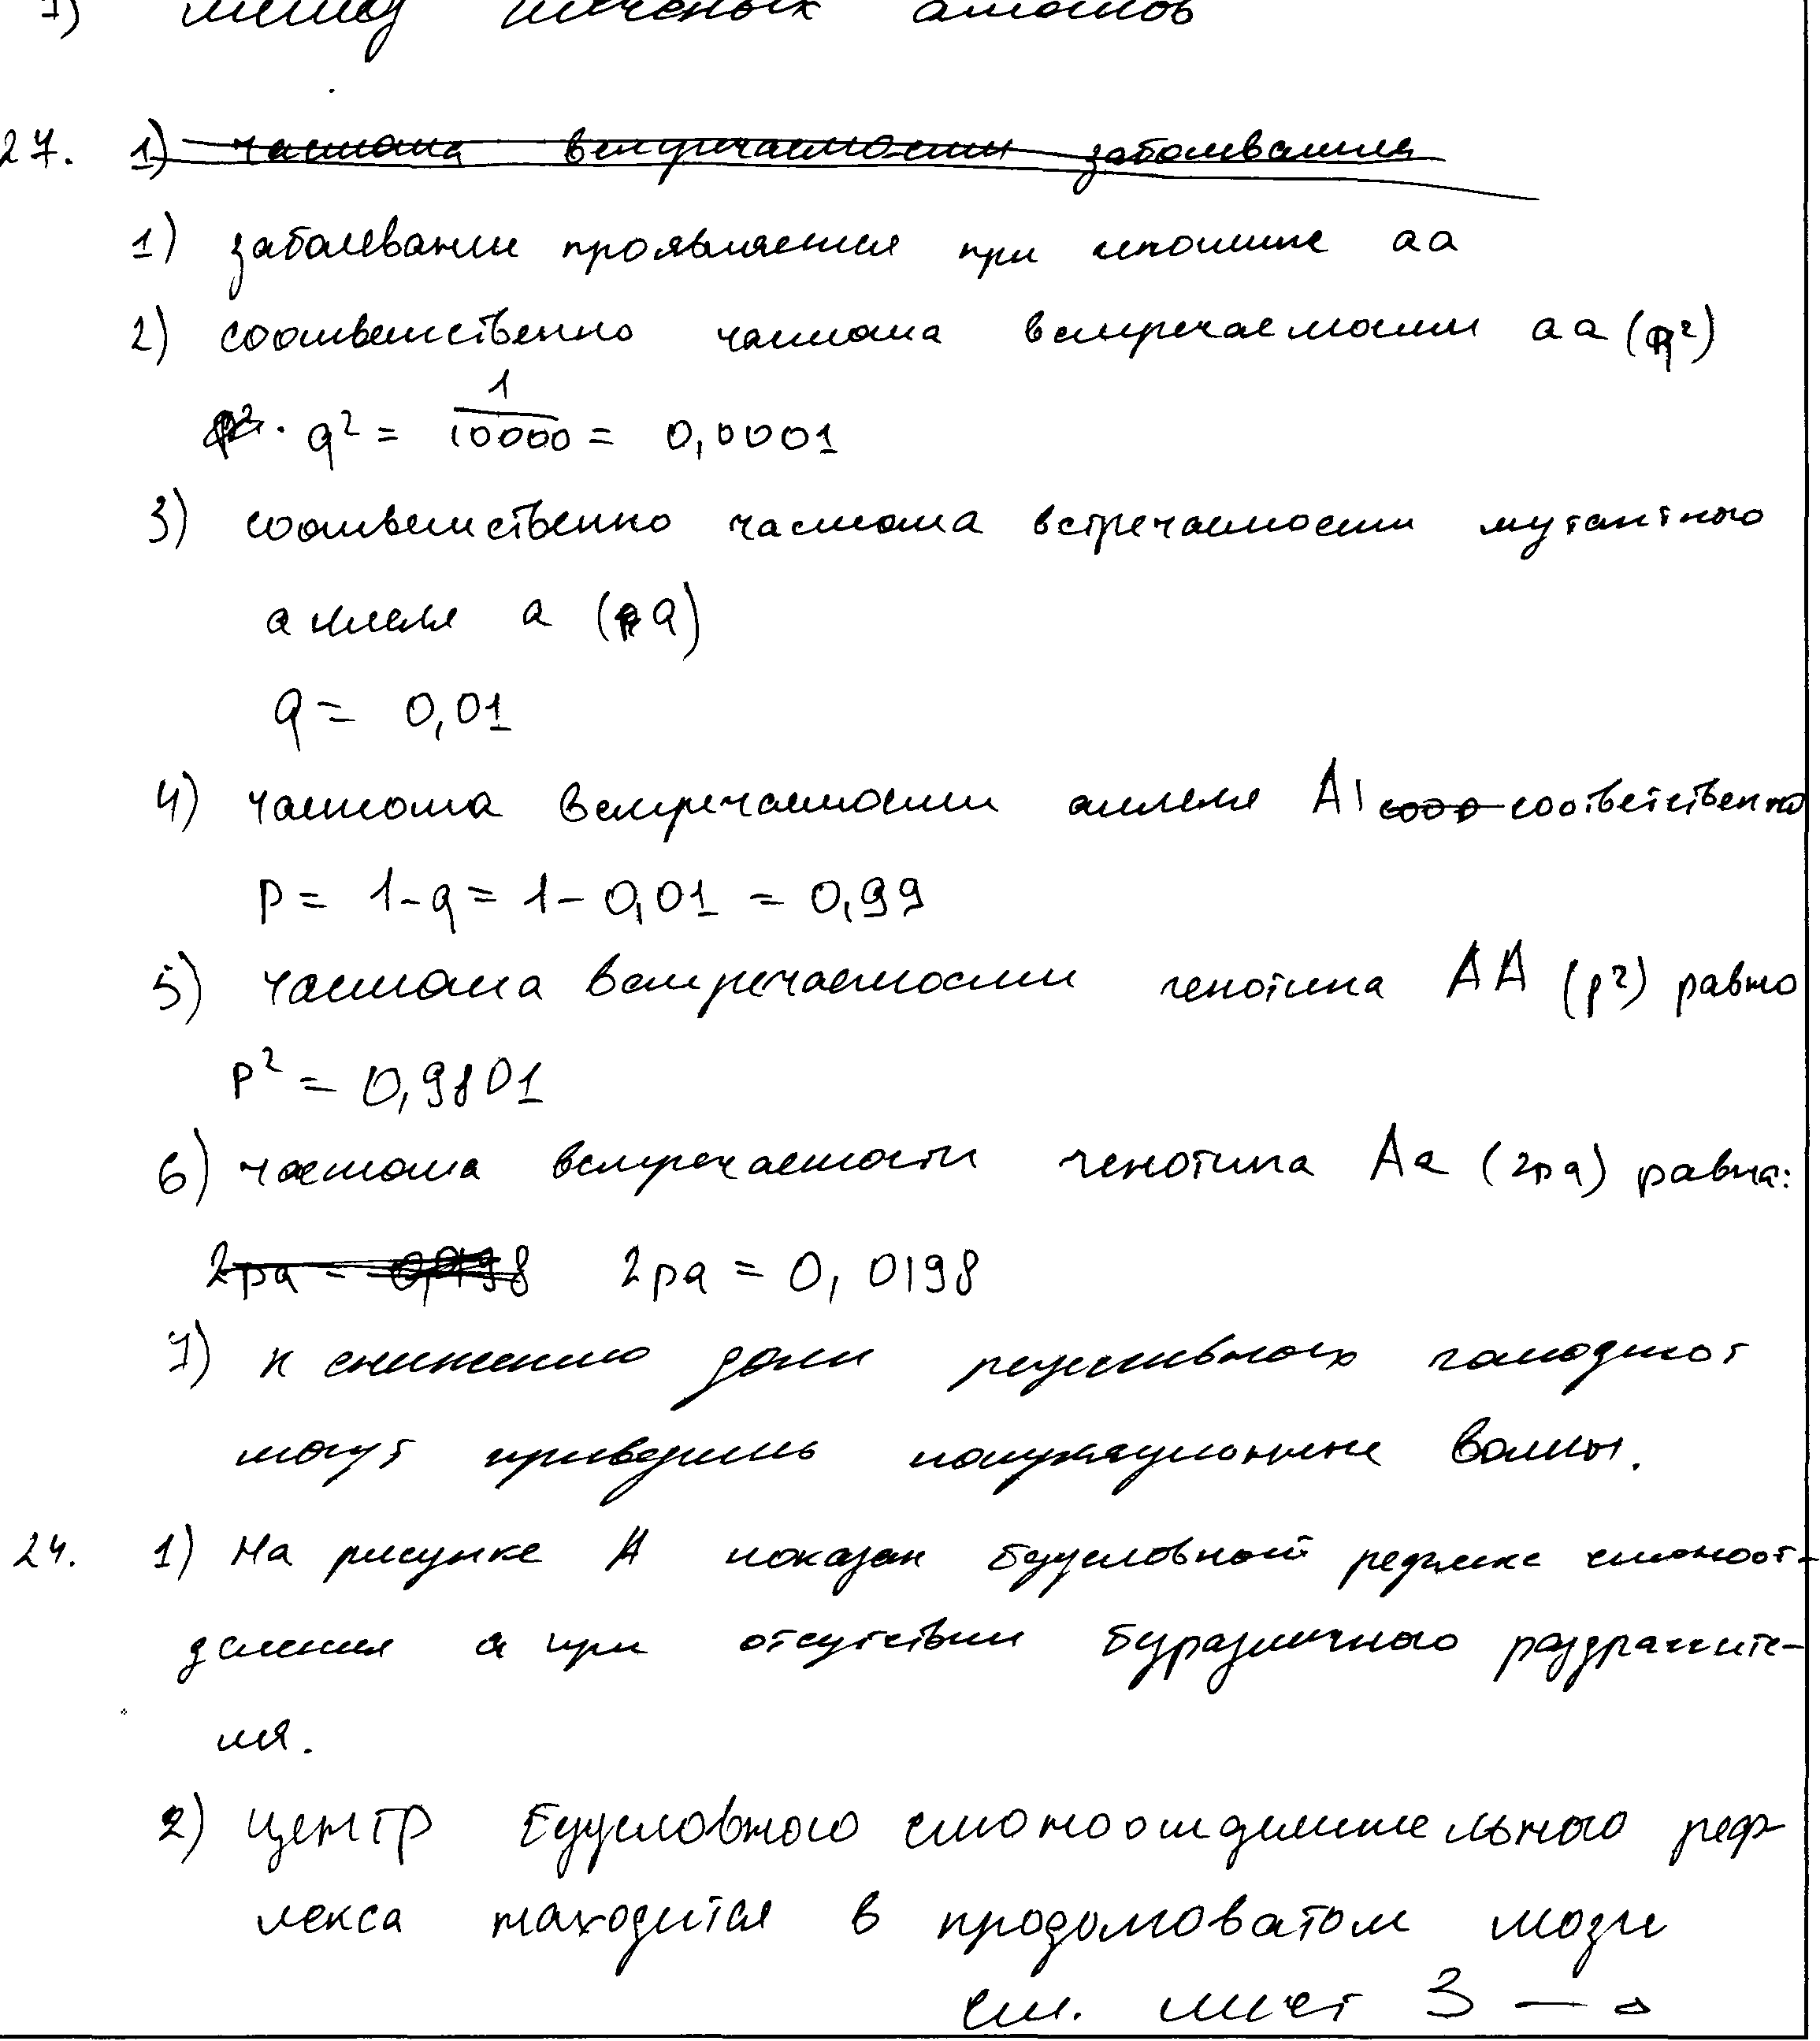 7) метод меченых атомов
27. 1) частота встречаемости заболевания
1) заболевание проявляется при генотипе aa
2) соответственно частота встречаемости aa (q²)
p². q² = 1/10000 = 0,0001
3) соответственно частота встречаемости мутантного
аллеля a (q)
q = 0,01
4) частота встречаемости аллеля A, соо соответственно
p = 1-q = 1 - 0,01 = 0,99
5) частота встречаемости генотипа AA (p²) равно
p² = 0,9801
6) частота встречаемости генотипа Aa (2pq) равна:
2pq = 0,0198 2pq = 0,0198
7) к снижению доли рецессивных гомозигот
могут приводить популяционные волны.
24. 1) На рисунке А показан безусловный рефлекс слюноот-
деления а при отсутствии безразличного раздражите-
ля.
2) центр безусловного слюноотделительного реф-
лекса находится в продолговатом мозге
см. лист 3 →